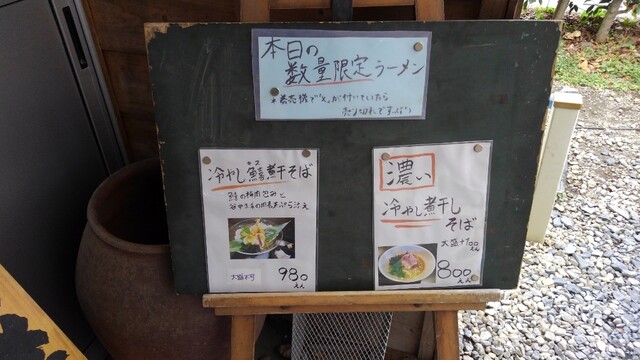 本日の
数量限定ラーメン
券売機で"×"が付いていたら
売り切れです。
キス
冷やし鱚煮干そば
鱚の梅肉包みと
大盛不可
980
えん
濃い
冷やし煮干し
そば
大盛+100
えん
800
えん